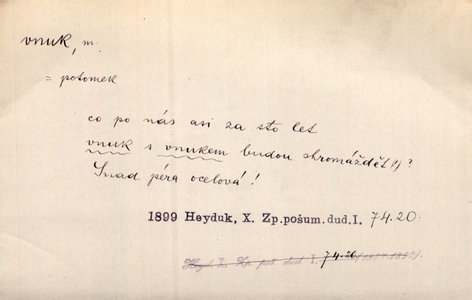 vnuk, m.
= potomek
co po nás asi za sto let
vnuk s vnukem budou shromážděti)?
Snad péra ocelová!
1899 Heyduk, X. Zp.pošum.dud.I. 74.20.
Heyd. X. Zp. poš. dud. I. 74.20.